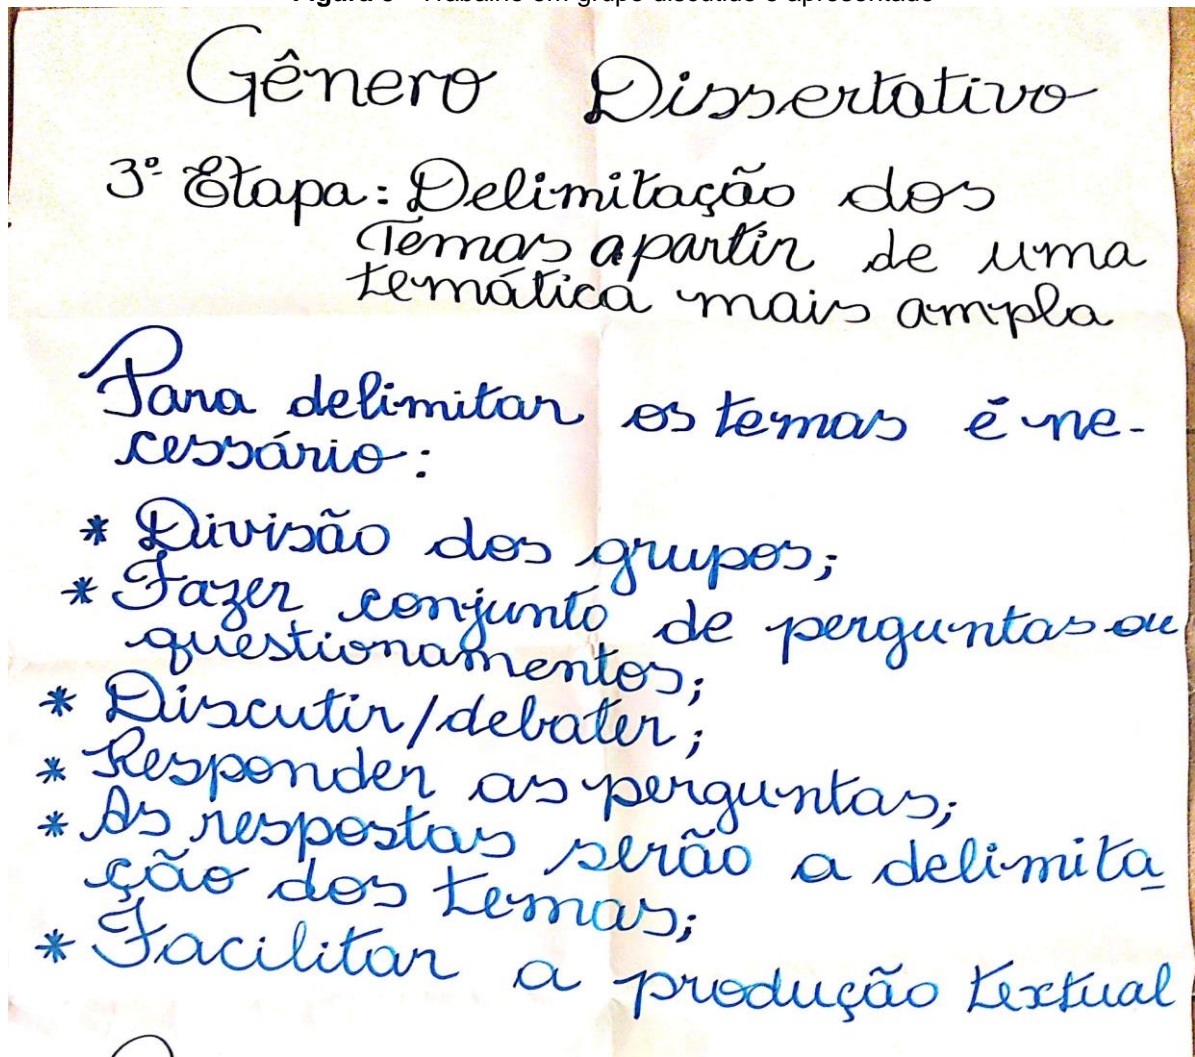 Gênero Dissertativo
3º Etapa: Delimitação dos
Temas apartir de uma
temática mais ampla
Para delimitar os temas é ne-
cessário:
* Divisão dos grupos;
* Fazer conjunto de perguntas ou
questionamentos;
* Discutir/debater;
* Responder as perguntas;
* As respostas serão a delimita
ção dos temas;
* Facilitar a produção textual